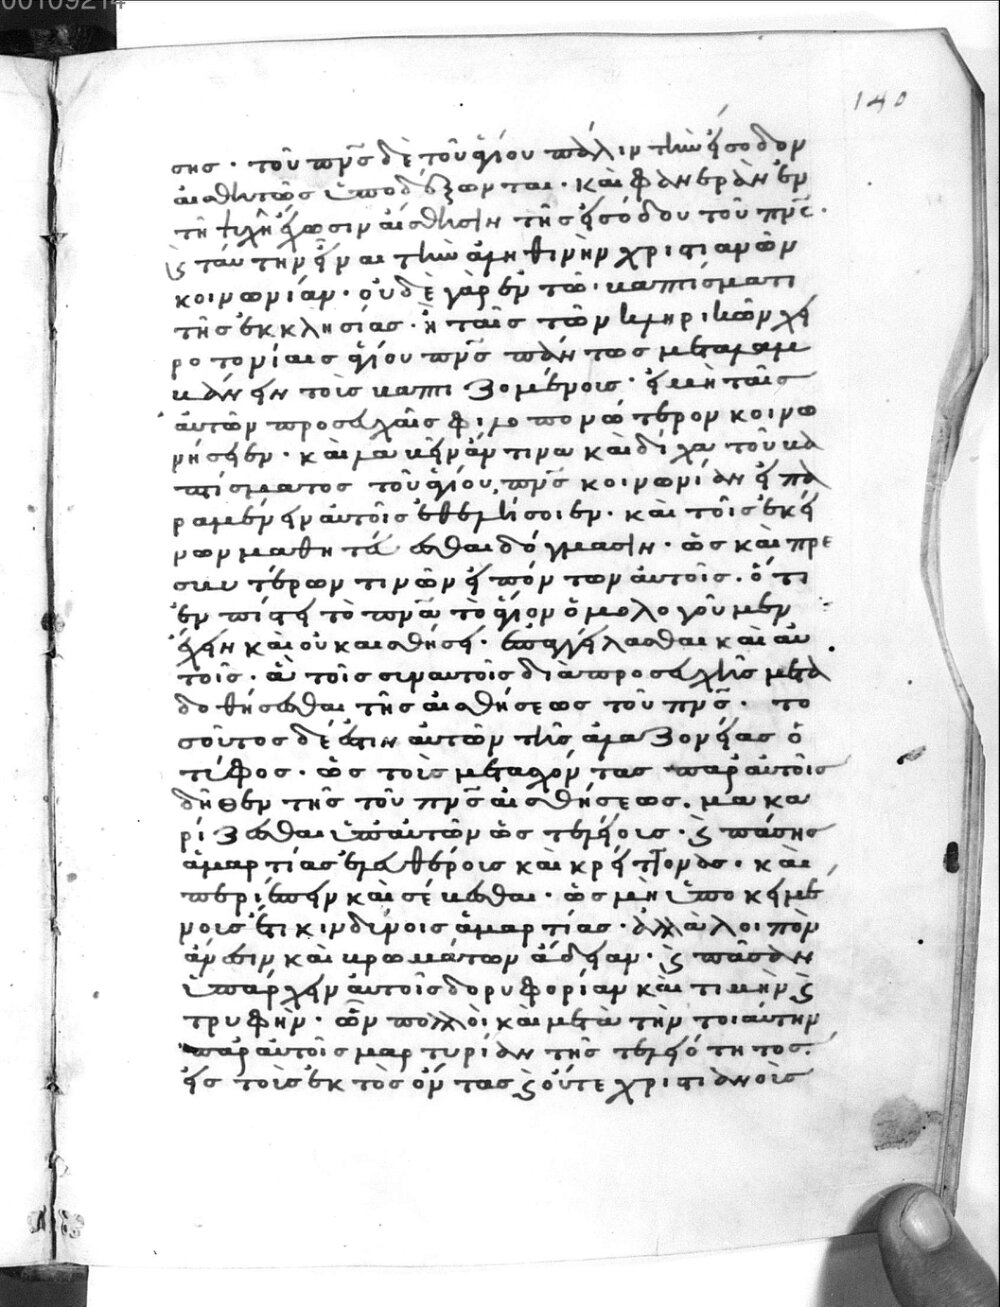 00109214
140
σης · τοῦ πν̅ς δὲ τοῦ ἁγίου πάλιν τὴν εἴσοδον
αἰσθητῶς ὑποδέξωνται · καὶ φανερὰν ἐν
τῇ ψυχῇ ἔχωσιν αἴσθησιν τῆς εἰσόδου τοῦ πν̅ς ·
ϗ ταύτην εἶναι τὴν ἀληθινὴν χριστιανῶν
κοινωνίαν · οὐδὲ γὰρ ἐν τῷ βαπτίσματι
τῆς ἐκκλησίας · ἢ ταῖς τῶν κληρικῶν χει
ροτονίαις ἁγίου πν̅ς πάντως μεταλαμ
βάνειν τοῖς βαπτιζομένοις · εἰ μὴ ταῖς
αὐτῶν προσευχαῖς φιλοπονώτερον κοινω
νήσειεν · καὶ λαβεῖν ἄν τινα καὶ δίχα τοῦ βα
πτίσματος τοῦ ἁγίου πν̅ς κοινωνίαν εἰ πα
ραμένειν αὐτοῖς ἐθελήσοιεν · καὶ τοῖς ἐκεί
νων μαθητεύεσθαι δόγμασιν · ὡς καὶ πρε
σβυτέρων τινῶν εἰπόντων αὐτοῖς · ὅτι
ἐν πίστει τὸ πν̅α τὸ ἅγιον ὁμολογοῦμεν
ἔχειν καὶ οὐκ αἰσθήσει · ἐπαγγείλασθαι καὶ αὐ
τοῖς · εὐ τοῖς συναυτοῖς διὰ προσευχῆς μετα
δοθήσεσθαι τῆς αἰσθήσεως τοῦ πν̅ς · το
σοῦτος δέ ἐστιν αὐτῶν τῆς ἀλαζονείας ὁ
τῖφος · ὡς τοῖς μετασχόντας παρ' αὐτοῖς
δῆθεν τῆς τοῦ πν̅ς αἰσθήσεως · μακα
ρίζεσθαι ὑπ' αὐτῶν ὡς τελείοις · ϗ πάσης
ἁμαρτίας ἐλευθέροις καὶ κρείττονας · καὶ
περιέπειν καὶ σέβεσθαι · ὡς μὴ ὑποκειμέ
νοις ἔτι κινδύνοις ἁμαρτίας · ἀλλὰ λοιπὸν
ἄνεσιν καὶ βρωμάτων ἄδειαν · ϗ πᾶσαν
ὑπάρχειν αὐτοῖς δορυφορίαν καὶ τιμὴν ϗ
τρυφὴν · ὧν πολλοὶ καὶ μετὰ τὴν τοιαύτην
παρ' αὐτοῖς μαρτυρίαν τῆς τελειότητος ·
εἰς τοῖς ἐκτὸς ὄντας ϗ οὔτε χριστιανοῖς